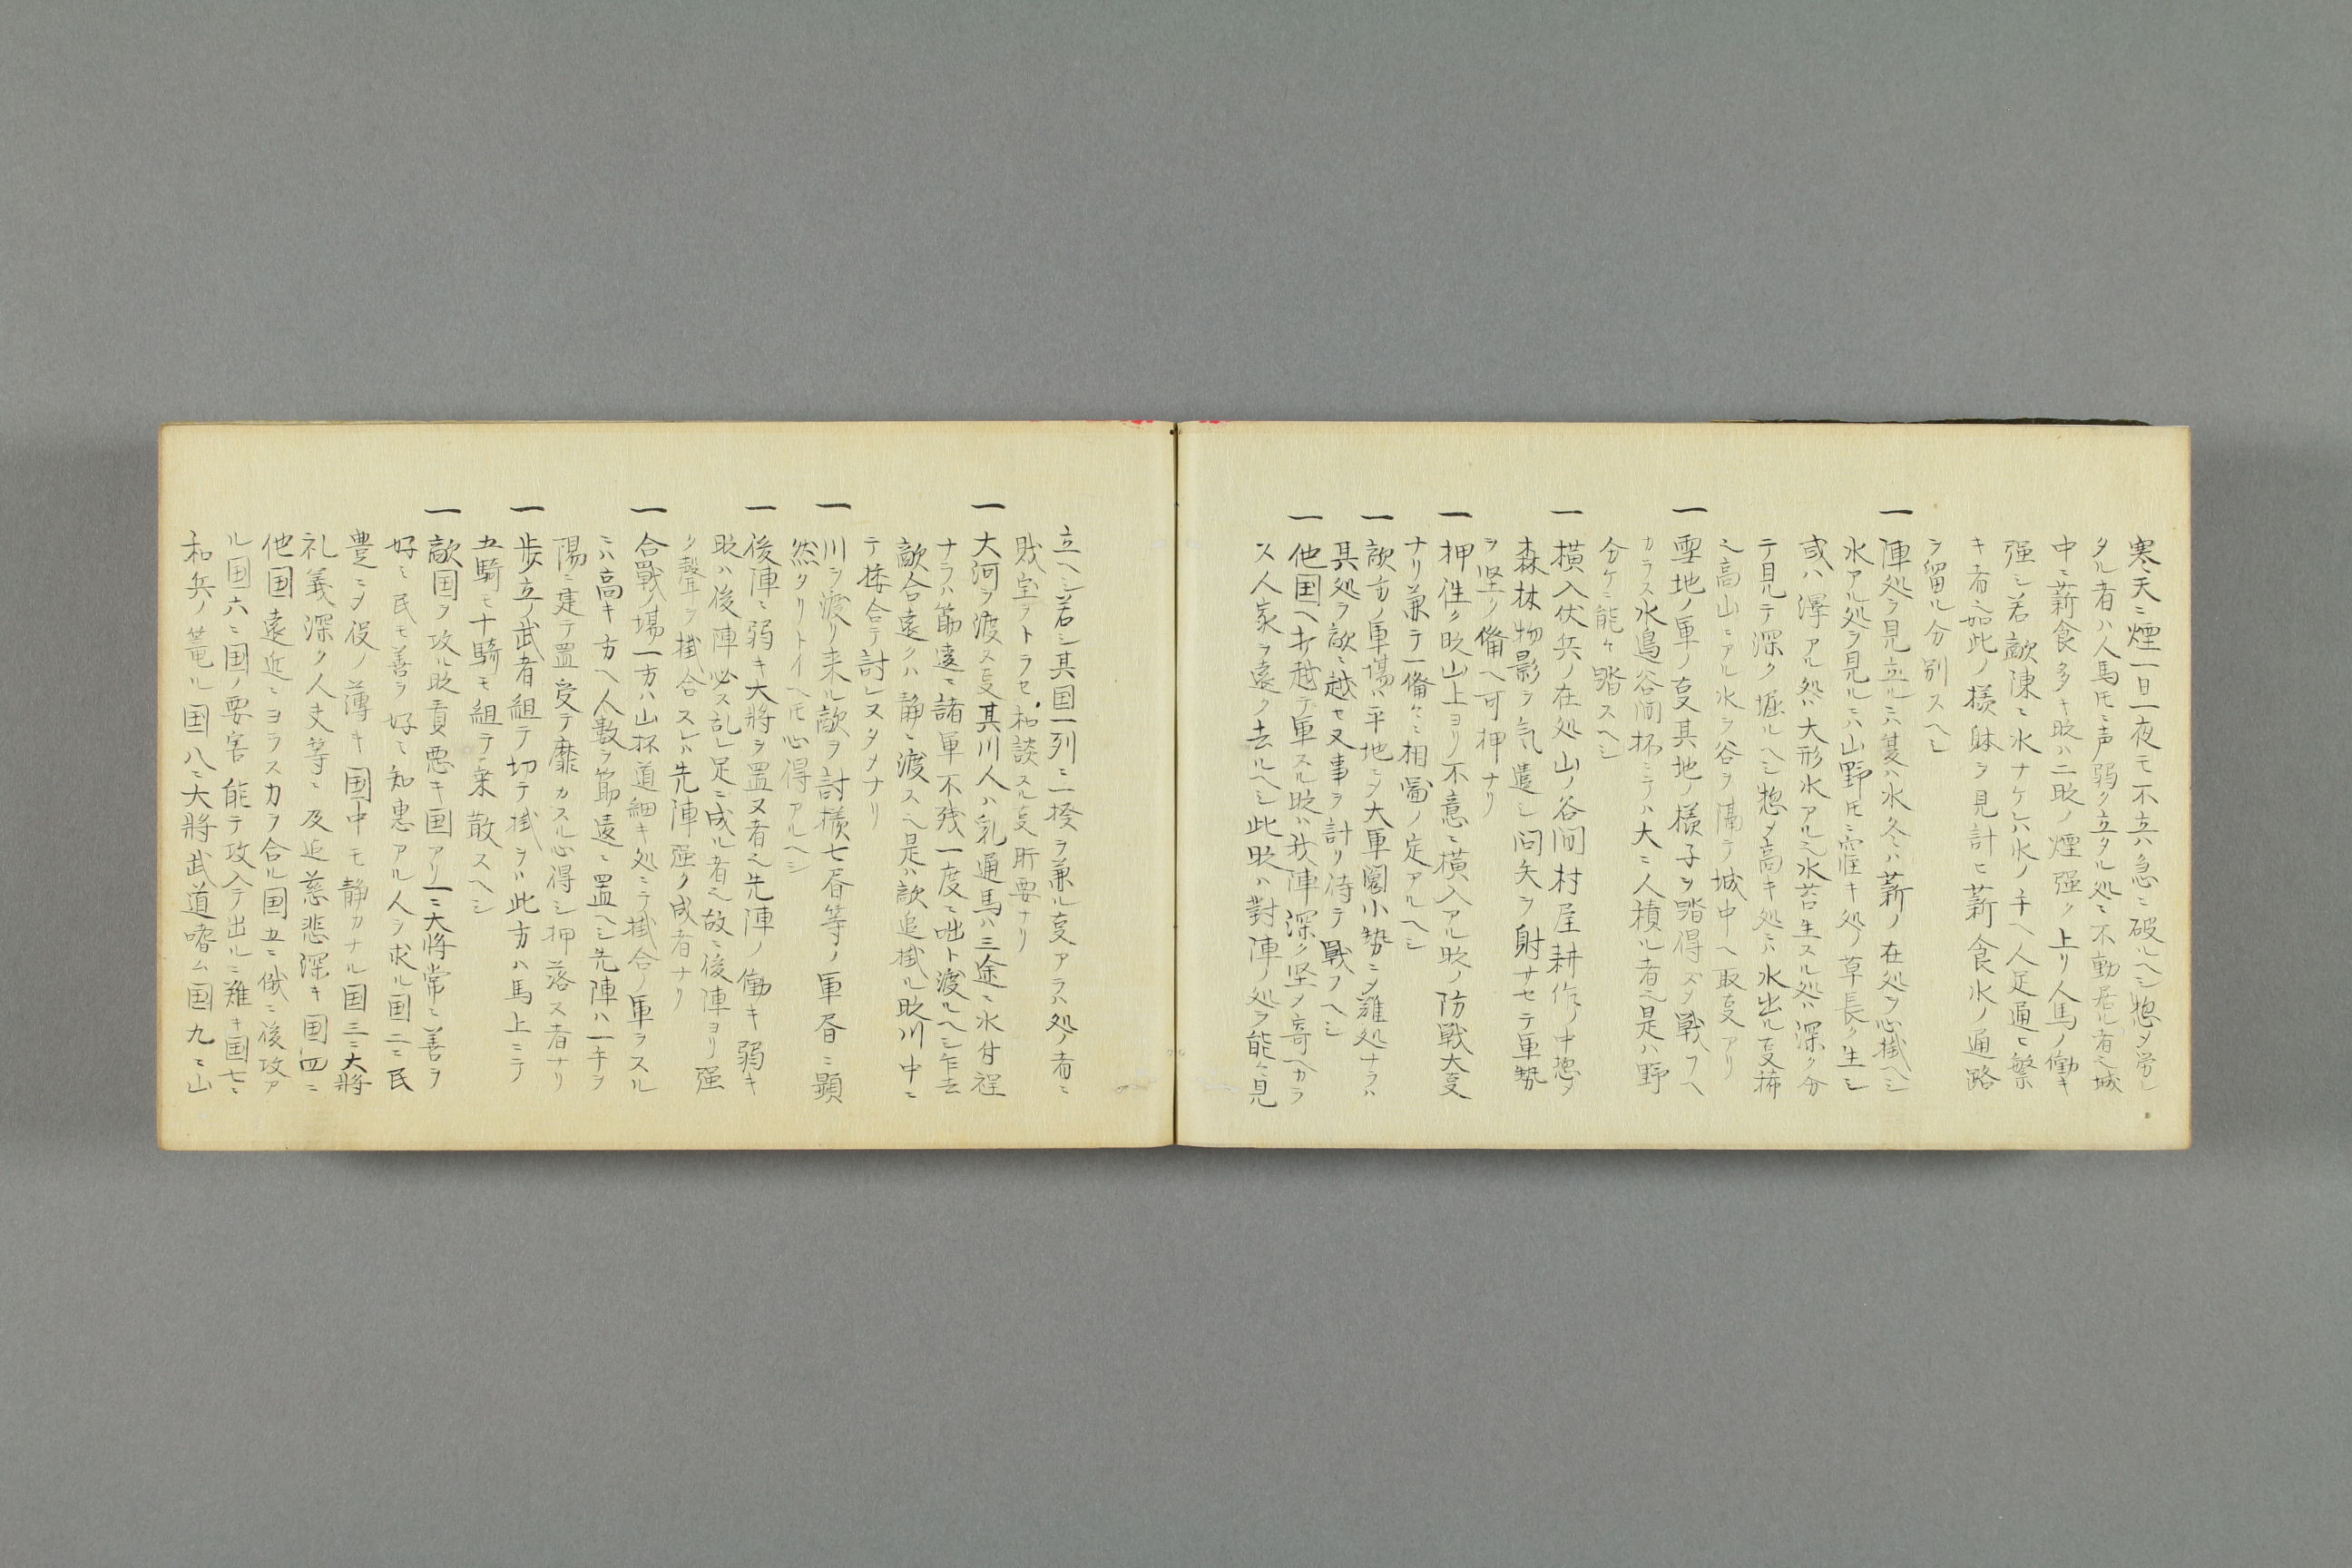 寒天ニ煙一日一夜モ不立ハ急ニ破ルヘシ惣〆労レ
タル者ハ人馬圧ニ声弱ク立タル処ニ不動居ル者也城
中ニ薪食多キ時ハ二時ノ煙強ク上リ人馬ノ働キ
强シ若敵陳ニ水ナケレハ水ノ手ヘ人足通ヒ繁
キ者也如此ノ様躰ヲ見計ヒ薪食水ノ通路
ヲ留ル分別スヘシ
一陣処ヲ見立ルニハ夏ハ水冬ハ薪ノ在処ヲ心掛ヘシ
水アル処ヲ見ルニハ山野圧ニ窪キ処ノ草長ク生シ
或ハ澤アル処ハ大形水アル也水苔生スル処ハ深ク分
テ見ルテ深ク堀ルヘシ惣〆高キ処ニハ水出ル事稀
也高山ニアル水ヲ谷ヲ隔テ城中ヘ取事アリ
一雪地ノ軍ノ事其地ノ様子ヲ踏得ズ〆戦フヘ
カラス水鳥谷河抔ニテハ大ニ人積ル者也是ハ野
分ケニ能々踏スヘシ
一横入伏兵ノ在処山ノ谷間村屋耕作ノ中惣〆
森林物影ヲ気遣シ問矢ヲ射サセテ軍勢
ヲ堅ク備ヘ可押ナリ
一押往ク時山上ヨリ不意ニ横入アル時ノ防戦大事
ナリ兼テ一備々ニ相圖ノ定アルヘシ
一敵方ノ軍場ハ平地ニ〆大軍圖小勢ニ〆難処ナラハ
其処ヲ敵ニ越セ又事ヲ計リ待テ戰フヘシ
一他国ヘ打越テ軍スル時ハ我陣深ク堅〆寄ヘカラ
ス人家ヲ遠ク去ルヘシ此時ハ對陣ノ処ヲ能々見
立ヘシ若シ其国一列ニ一揆ヲ兼ル事アラハ処ノ者ニ
財宝ヲトラセ和談スル事肝要ナリ
一大河ヲ渡ス事其川人ハ乳通馬ハ三途ニ水付程
ナラハ節遠ニ諸軍不残一度ニ咄ト渡ルヘシ乍去
敵合遠クハ静ニ渡スヘシ是ハ敵追掛ル時川中ニ
テ接合テ討レヌタメナリ
一川ヲ渡リ来ル敵ヲ討様七眉等ノ軍眉ニ顕
然タリトイヘ圧心得アルヘシ
一後陣ニ弱キ大將ヲ置又者也先陣ノ働キ弱キ
時ハ後陣必ス乱レ足ニ成ル者也故ニ後陣ヨリ强
ク聲ヲ掛合スレハ先陣强ク成者ナリ
一合戰ノ場一方ハ山抔道細キ処ニテ掛合ノ軍ヲスル
ニハ高キ方ヘ人數ヲ節遠ニ置ヘシ先陣ハ一手ヲ
陽ニ建テ置受テ靡カスル心得シ押落ス者ナリ
一歩立ノ武者組テ切テ掛ラハ此方ハ馬上ニテ
五騎モ十騎モ組テ乗散スヘシ
一敵国ヲ攻ル時責悪キ国アリ一ニ大將常ニ善ヲ
好ミ民モ善ヲ好ミ知恵アル人ヲ求ル国二ニ民
豊ニ〆役ノ薄キ国中モ静カナル国三ニ大將
礼義深ク人支等ニ及迄慈悲深キ国四ニ
他国遠近ニヨラスカヲ合ル国五ニ俄ニ後攻ア
ル国六ニ国ノ要害能テ攻入テ出ルニ難キ国七ニ
和兵ノ篭ル国八ニ大將武道嗜ム国九ニ山